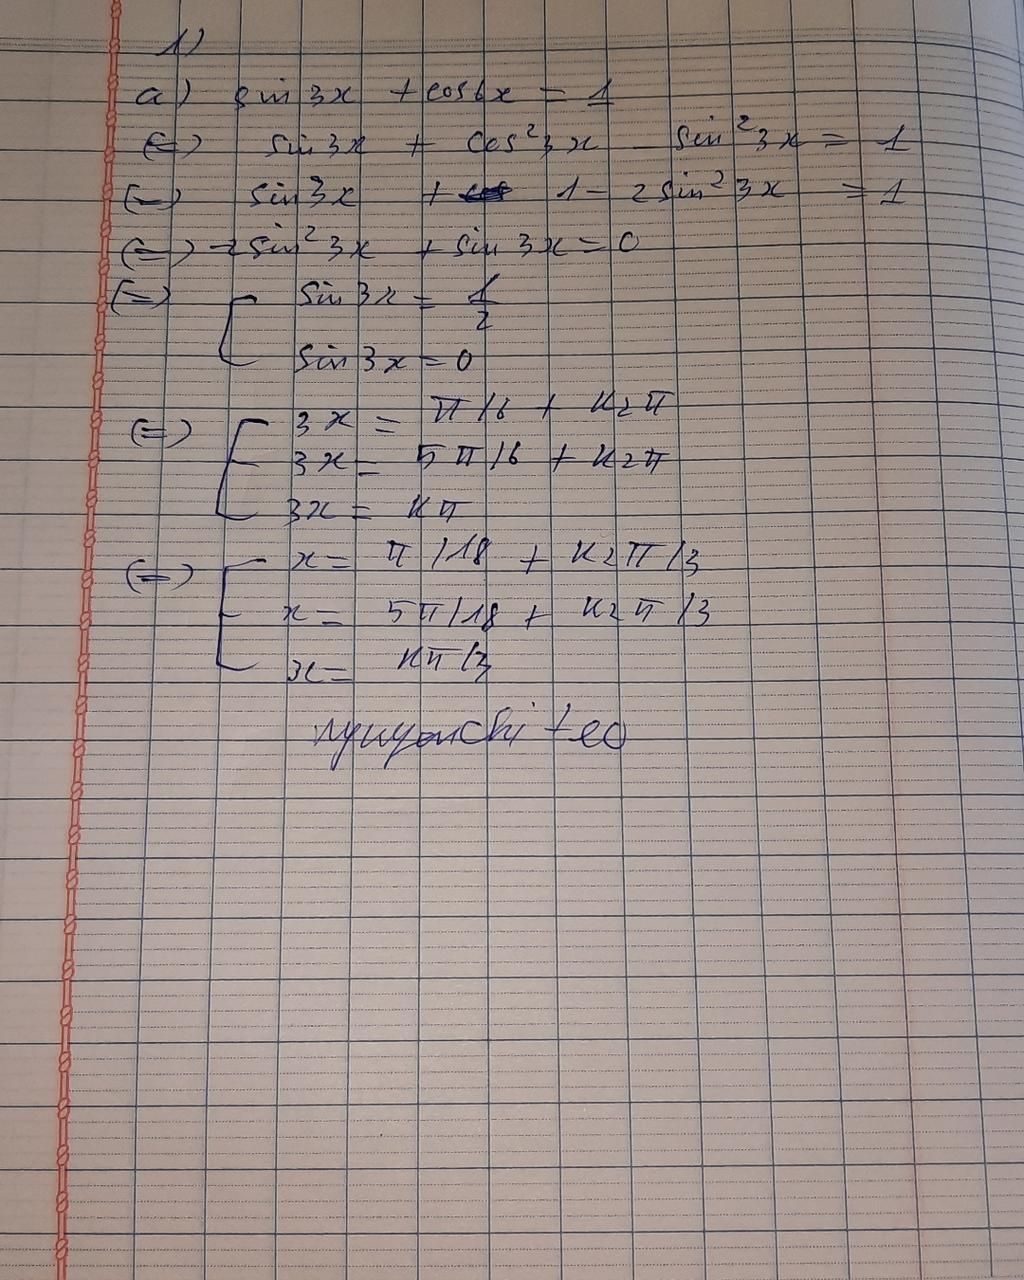 1)
a) sin 3x + cos6x = 1
(=) sin 3x + cos²3x - sin²3x = 1
(=) sin 3x + 1 - 2 sin² 3x = 1
(=) -2sin² 3x + sin 3x = 0
(=) [ sin 3x = 1/2
sin 3x = 0
(=) [ 3x = π/6 + k2π
3x = 5π/6 + k2π
3x = kπ
(=) [ x = π/18 + k2π/3
x = 5π/18 + k2π/3
x = kπ/3